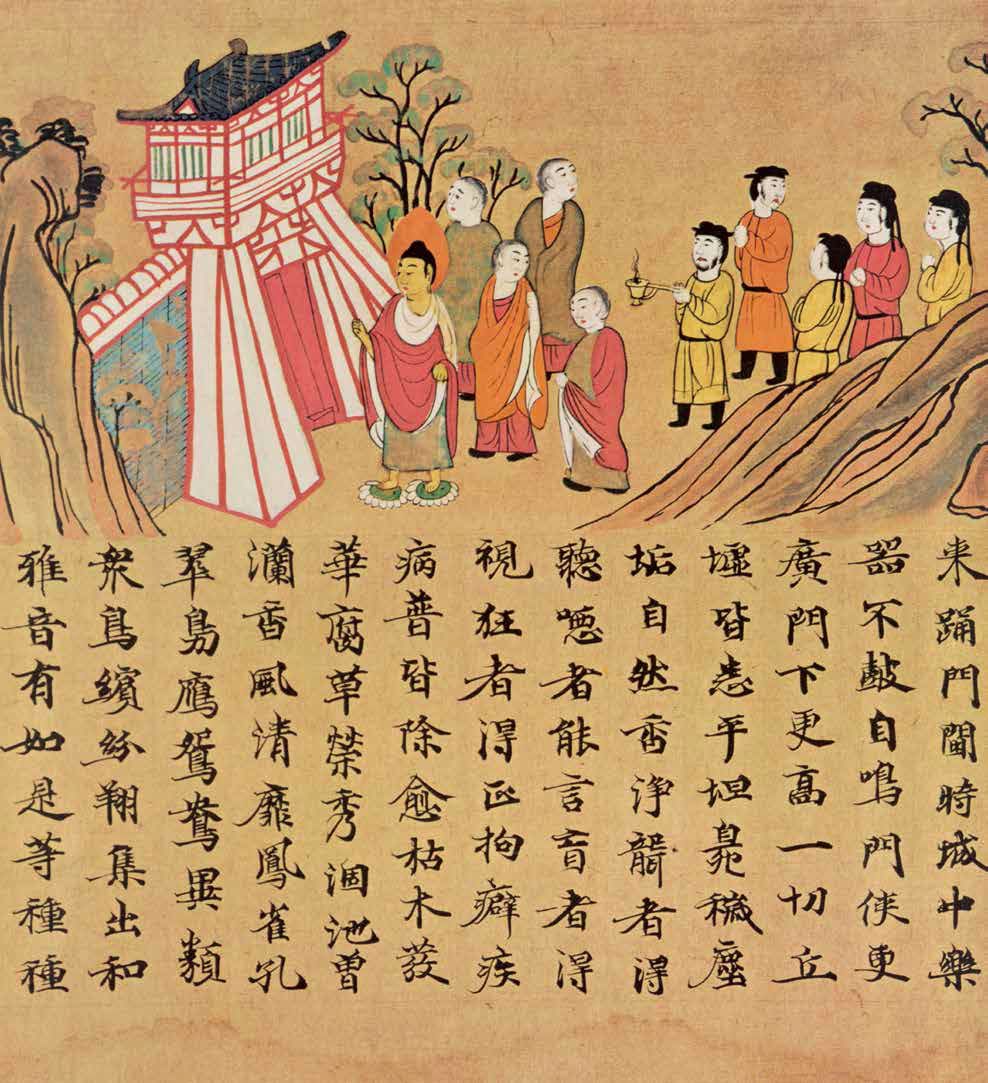 来踊門閫時城中樂
器不皷自鳴門俠更
廣門下更高一切丘
墟皆悉平坦臰穢塵
垢自然香浄聾者得
聴啞者能言盲者得
視狂者得正拘癖疾
病普皆除愈枯木發
華腐草榮秀涸池曽
瀾香風清靡鳳雀孔
翠鳧鷹鴛鴦異類
衆鳥繽紛翔集出和
雅音有如是等種種